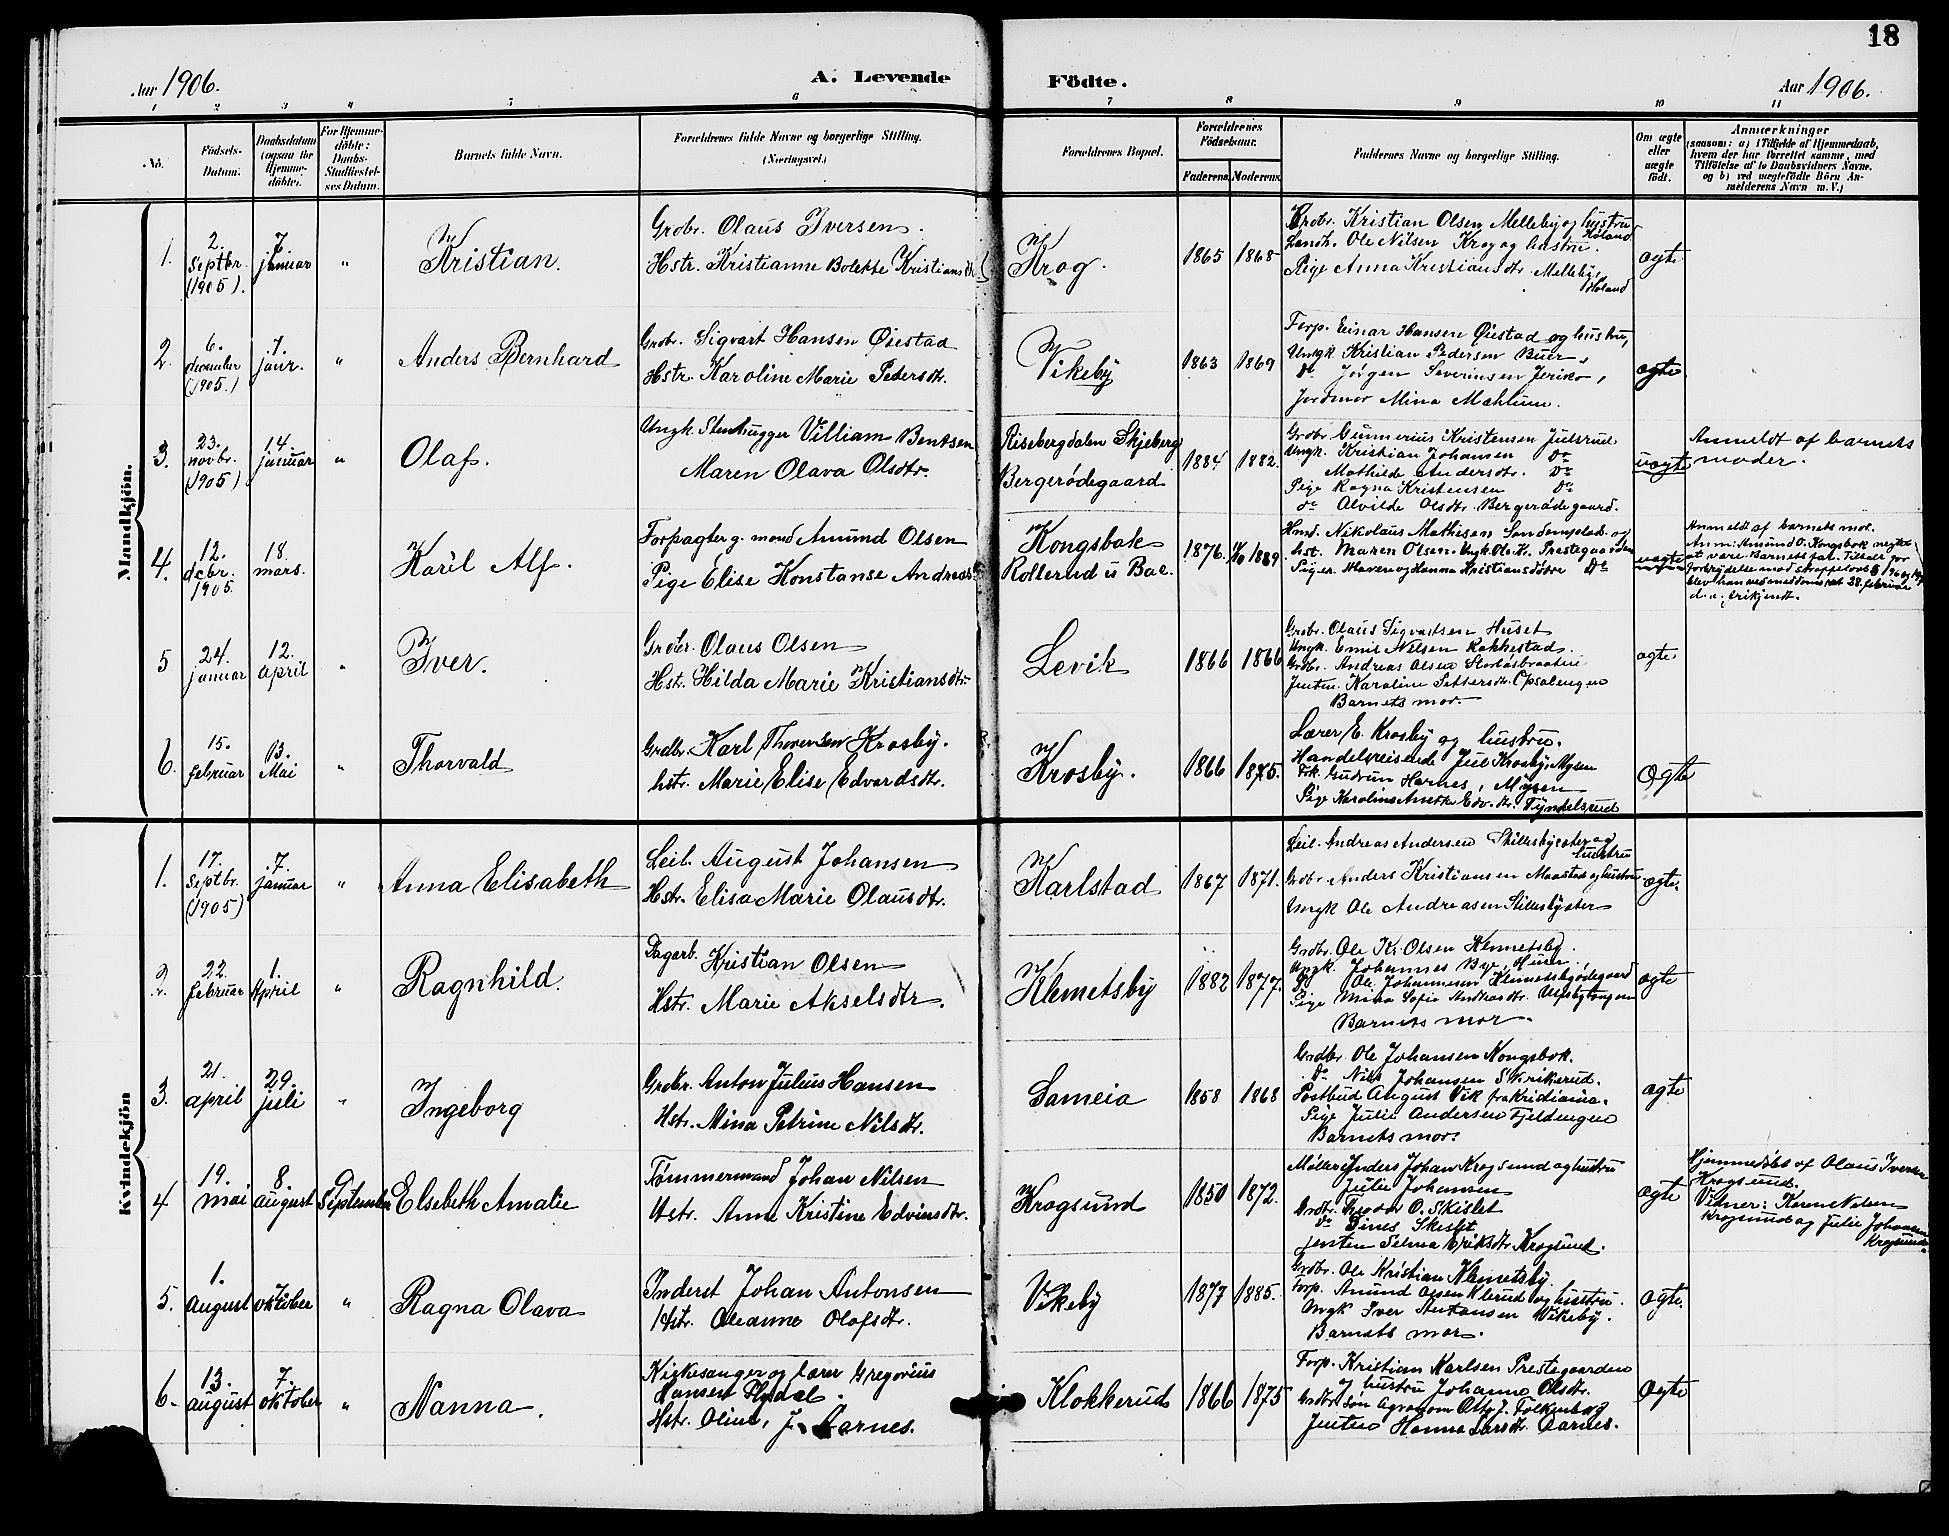 18
Aar 1906.
A. Levende
Födte.
Aar 1906.
1 2 3 4 5 6 7 8 9 10 11
No.
Födsels-Datum.
Daabsdatum (ogsaa for Hjemmedöbte).
For Hjemmedöbte: Daabs-Stadfæstelses Datum.
Barnets fulde Navn.
Forældrenes fulde Navne og borgerlige Stilling.
(Næringsvei.)
Forældrenes Bopæl.
Forældrenes Födselsaar.
Faderens. Moderens.
Faddernes Navne og borgerlige Stilling.
Om ægte eller uægte födt.
Anmærkninger
(saasom: a) i Tilfælde af Hjemmedaab,
hvem der har forrettet samme, med
Tilföielse af to Daabsvidners Navne,
og b) ved uægtefödte Börn An-
melderens Navn m. V.)
Mandkjön.
1.
2. Septbr. (1905).
7. januar
"
Kristian.
Grdbr. Olaus Iversen.
Hstr. Kristianne Bolette Kristiansdtr.
Krog.
1865 1868
Grdbr. Kristian Olsen Melleby og hustru Høland
Landh. Ole Nilsen Krog og hustru.
Pige Anna Kristiansdtr. Melleby, Høland
ægte
2.
6. december (1905.)
7. janr.
"
Anders Bernhard
Grdbr. Sigvart Hansen Øiestad
Hstr. Karoline Marie Pedersdtr.
Vikeby
1863 1869
Forp. Einar Hansen Øiestad og hustru,
Ungk. Kristian Pedersen Buer,
do Jørgen Severinsen Jeriko,
Jordmor Mina Mæhlum.
ægte
3.
23. novbr. (1905)
14 januar
"
Olaf.
Ungk. Stenhugger Villiam Bentsen
Maren Olava Olsdtr.
Risebergdalen Skjeberg
Bergerødegaard
1884 1882.
Grdbr. Gunnerius Kristensen Julsrud
Ungk. Kristian Johansen Do
Mathilde Andersdtr. Do
Pige Ragna Kristensen Do
do Alvilde Olsdtr. Bergerødegaard.
uægte
Anmeldt af barnets
moder.
4.
12. dcbr. 1905.
18. mars.
Karil Alf.
Forpagter g. mand Amund Olsen
Pige Elise Konstanse Andreas
Kongsbok
Rollerud u Bae.
1876. 1889.
Hmd. Nikolaus Mathisen Sandemplads og
hst. Maren Olsen. Ungk. Ole K. Prestegaarden
Piger Maren og Hanna Kristiansdøtre Do
uægte
Anmeldt af barnets mor.
Anm: Amund O. Kongsbok negtet
at være Barnets far. Tiltalt for
forbrydelse mod straffelovs § 196
blev han ved meddomsret 28. februar
d. a. frikjendt.
5
24. januar
12. april
"
Iver.
Grdbr. Olaus Olsen
Hst. Hilda Marie Kristiansdtr.
Levik
1866 1866
Grdbr. Olaus Sigvartsen Huset
Ungk. Emil Nilsen Rakkestad.
Grdbr. Andreas Olsen Storlösbraaten
Jenten Karoline Pettersdtr. Opsalengen
Barnets mor.
ægte
6.
15. februar
13. Mai
"
Thorvald
Grdbr. Karl Thorensen Krosby.
hstr. Marie Elise Edvardsdtr.
Krosby.
1866 1875.
Lærer E. Krosby og hustru.
Handelsreisende Juul Krosby, Mysen
Frk. Gudrun Harnes, Mysen
Pige Karoline Anette Edv. dtr. Tyndelsrud
Ægte
Kvindekjön
1.
17. Septbr. (1905)
7. januar
"
Anna Elisabeth
Leil. August Johansen
Hstr. Elisa Marie Olausdtr.
Karlstad
1867 1871.
Leil. Andreas Andersen Skillebyæter og hustru
Grdbr. Anders Kristiansen Maastad og hustru
Ungk Ole Andreasen Skillebyæter
ægte.
2.
22. februar
1. April
"
Ragnhild.
Dagarb. Kristian Olsen
Hstr. Marie Akselsdtr.
Klemetsby
1882 1877.
Grdbr. Ole Kr. Olsen Klemetsby.
Ungk. Johannes Bye, Huen.
Do Ole Johannesen Klemetsbyødegaard
Pige Mina Sofie Andreasdtr. Ulfsbyengen
Barnets mor.
ægte
3.
21. april
29. juli
"
Ingeborg
Grdbr. Anton Julius Hansen
Hstr. Mina Petrine Nilsdtr.
Lameia
1858 1868
Grdbr. Ole Johansen Kongsbok.
do Nils Johansen Skrikerud.
Postbud August Vik fra Kristiania.
Pige Julie Andersen Fjeldengen
Barnets mor.
ægte
4
19. mai
8. august
9 September
Elsebeth Amalie
Tømmermand Johan Nilsen
Hstr. Anne Kristine Edvinsdtr.
Krogsund
1850 1872.
Møller Anders Johan Krogsund og hustru
Julie Johansen
Grdbr. Theodor O. Skislet
do Dines Skislet
Jenten Selma Eriksdtr. Krogsund.
ægte
Hjemmedøbt af Olaus Iversen
Krogsund.
Vidner: Karen Nilsen
Krogsund og Julie Johansen
Krogsund.
5.
1. august
7 oktober
"
Ragna Olava
Inderst Johan Antonsen
Hstr. Oleanne Olafsdtr.
Vikeby
1877 1885.
Grdbr. Ole Kristian Klemetsby.
Forp. Amund Olsen Klerud og hustru.
Ungk Iver Antonsen Vikeby.
Barnets mor.
ægte.
6.
13. august
7. oktober
"
Nanna.
Kirkesanger og lærer Gregorius
Hansen
Hstr. Oline, J. Aarnes.
Klokkerud
1866 1875
Forp. Kristian Karlsen Prestegaarden
og hustru Johanne Olsdtr.
Grdbr. søn Agronom Otto J. Folkenborg
Jenten Hanna Larsdtr. Aarnes.
Ægte